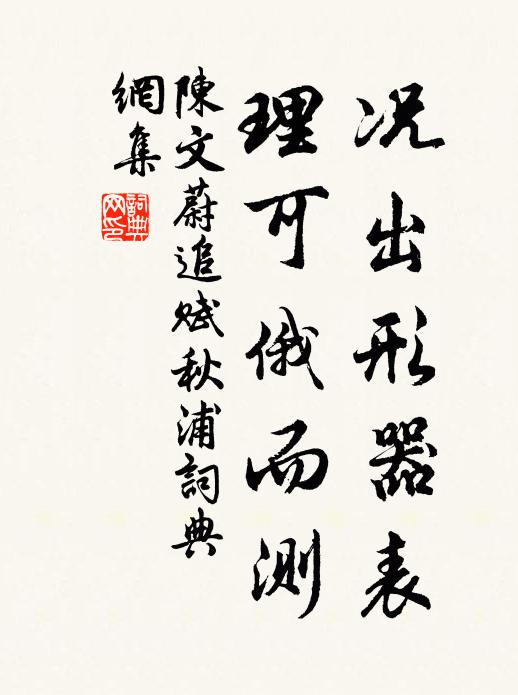 况出形器表
理可俄而測
陳文蔚追赋秋浦詞典
網集
詞典
网印